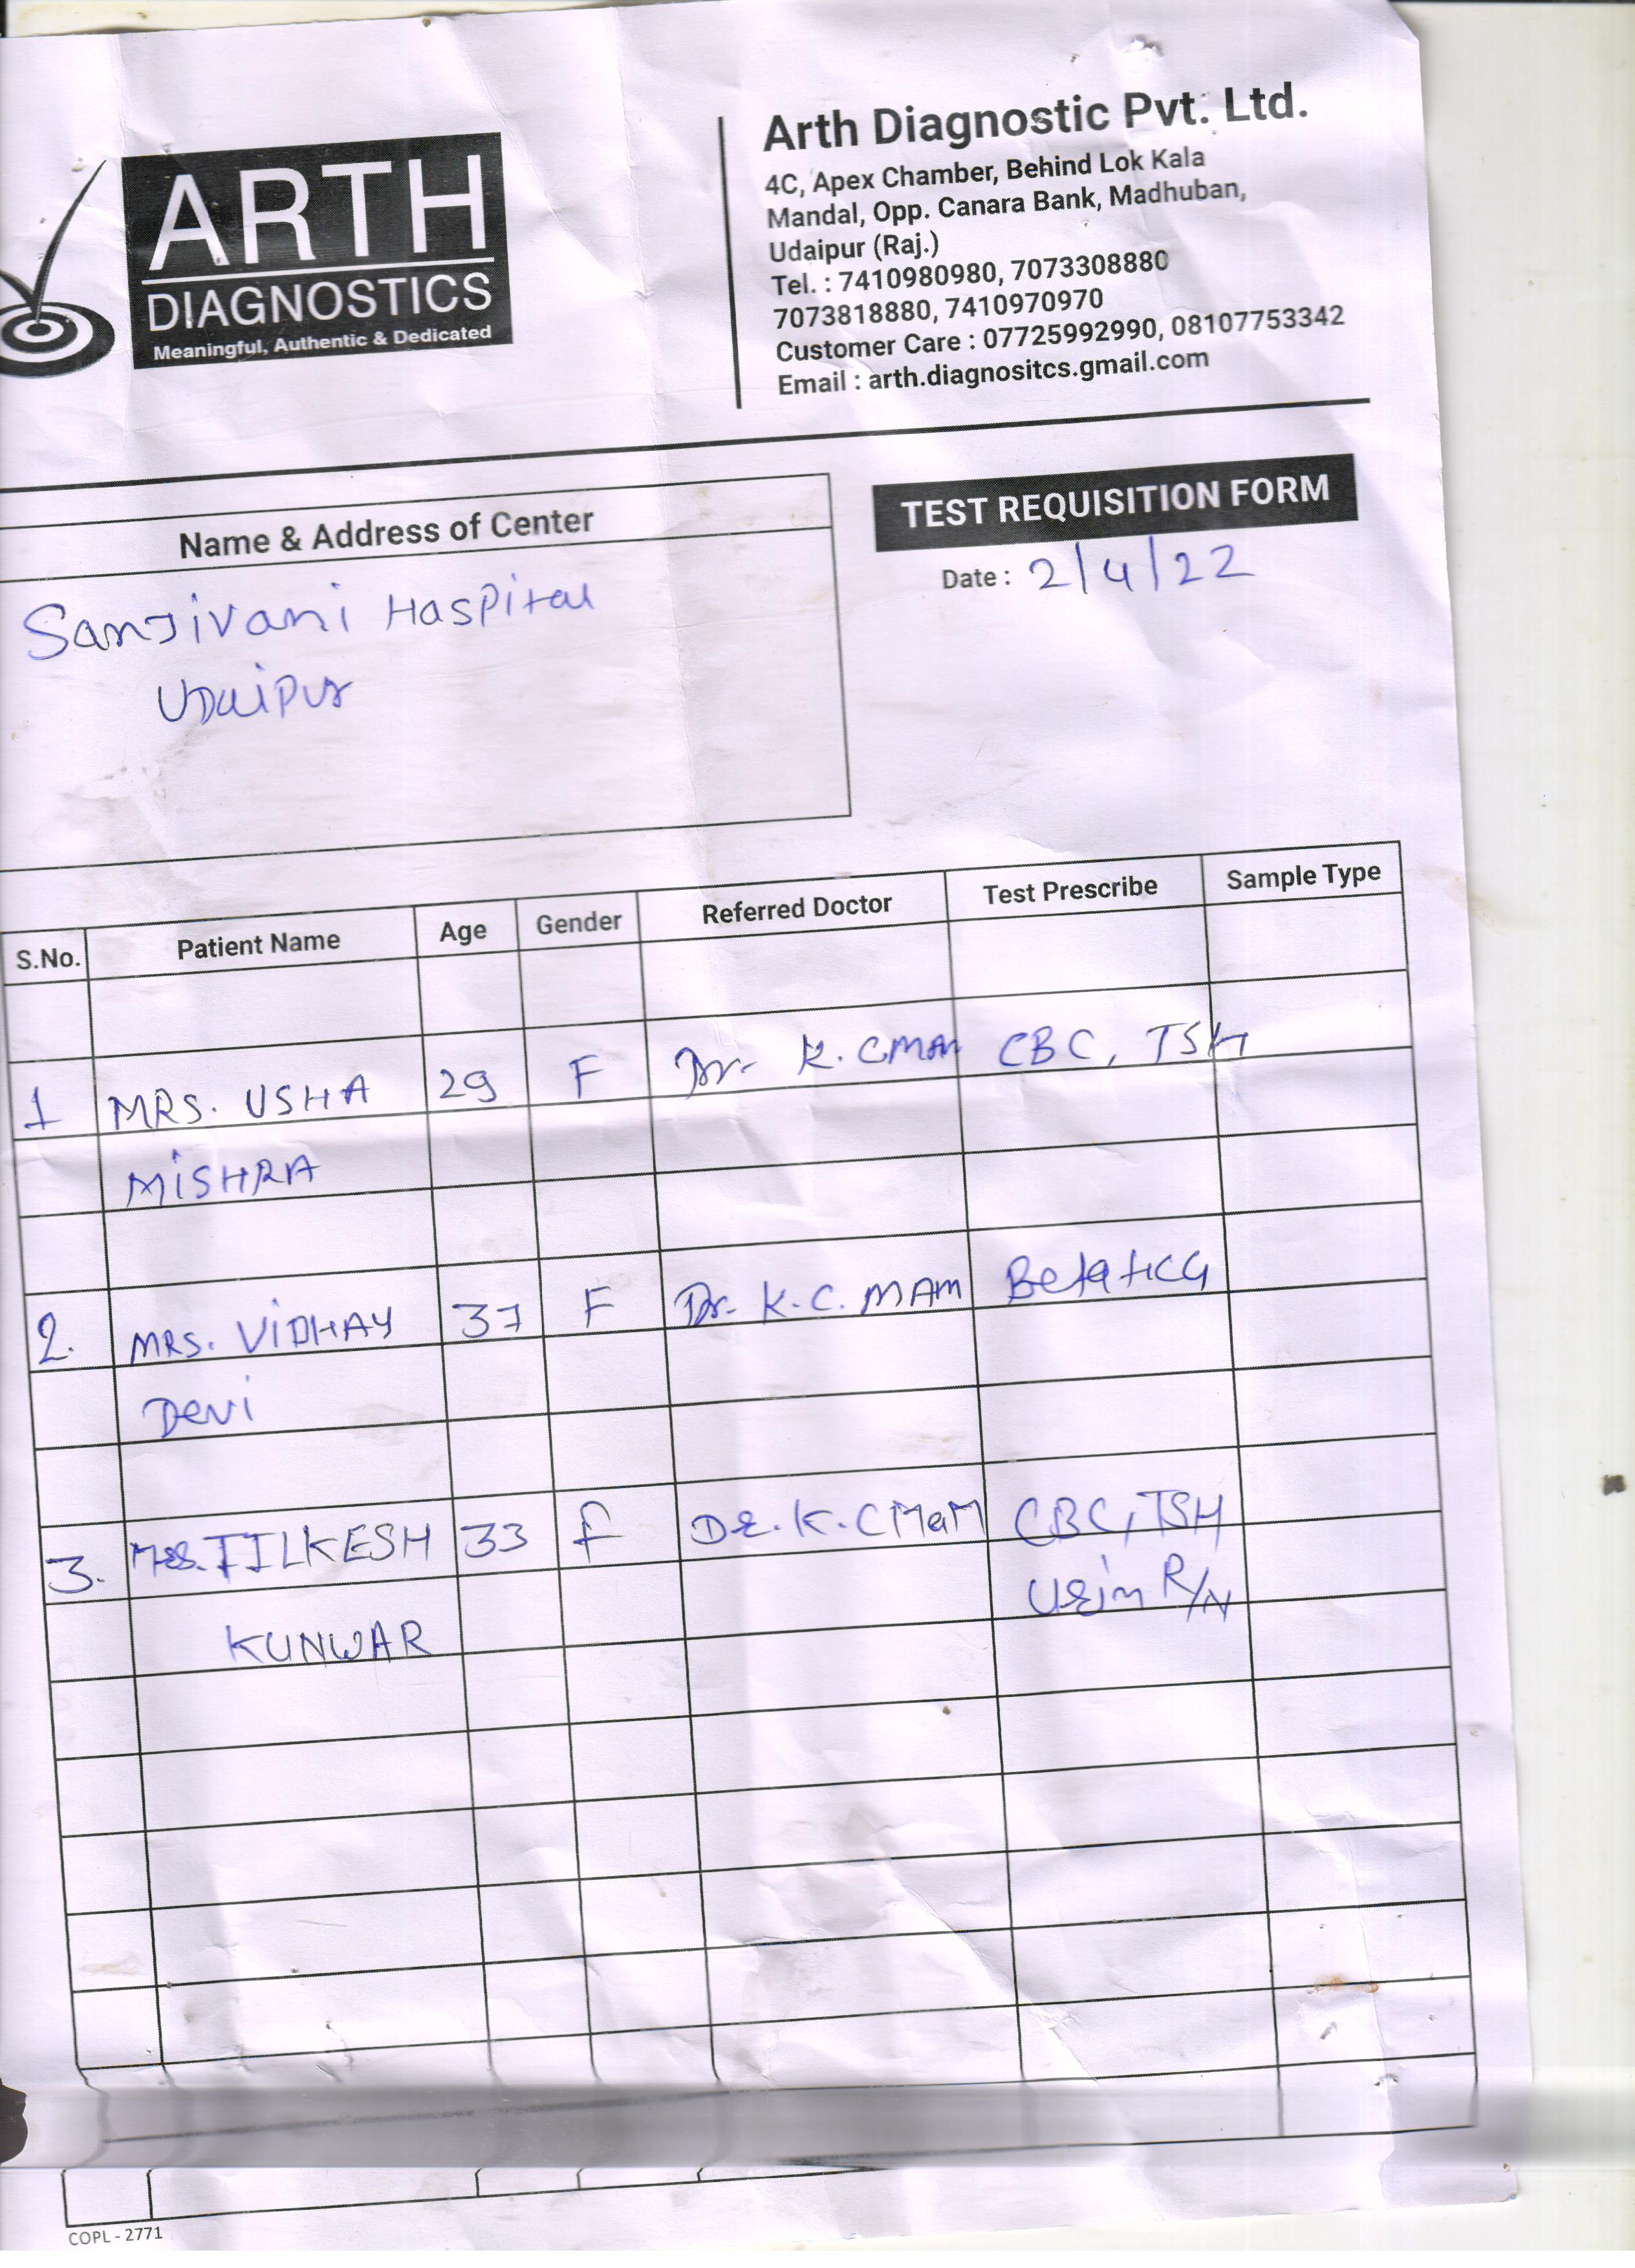 ARTH
DIAGNOSTICS
Meaningful, Authentic & Dedicated
Arth Diagnostic Pvt. Ltd.
4C, Apex Chamber, Behind Lok Kala
Mandal, Opp. Canara Bank, Madhuban,
Udaipur (Raj.)
Tel. : 7410980980, 7073308880
7073818880, 7410970970
Customer Care : 07725992990, 08107753342
Email : arth.diagnositcs.gmail.com
Name & Address of Center
Sanjivani Haspital
Udaipur
TEST REQUISITION FORM
Date : 2/4/22
S.No. Patient Name Age Gender Referred Doctor Test Prescribe Sample Type
1 MRS. USHA 29 F Dr. K. C MAM CBC, TSH
MISHRA
2. MRS. VIDHAY 37 F Dr. K.C. MAM Beta HCG
Devi
3. Mrs. TILKESH 33 F Dr. K.C MaM CBC, TSH
Urin R/N
KUNWAR
COPL - 2771